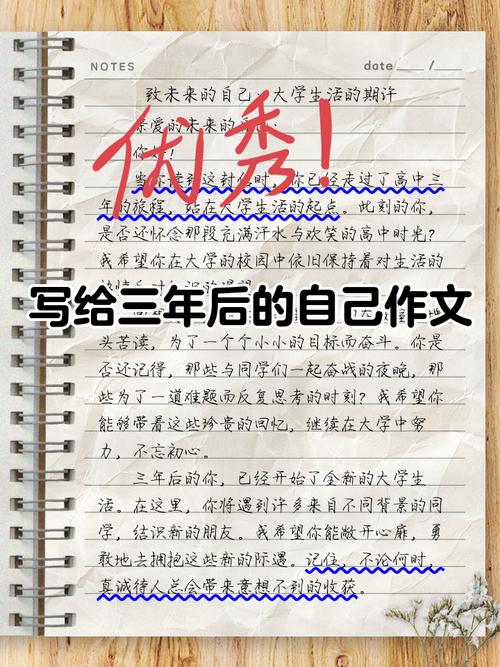 NOTES
date / 
致未来的自己:大学生活的期许
亲爱的未来的自己:
你好!
优秀!
当你读到这封信时,你已经走过了高中三
年的旅程,站在大学生活的起点。此刻的你,
是否还怀念那段充满汗水与欢笑的高中时光?
我希望你在大学的校园中依旧保持着对生活的
写给三年后的自己作文
头苦读,为了一个个小小的目标而奋斗。你是
否还记得,那些与同学们一起奋战的夜晚,那
些为了一道难题而反复思考的时刻?我希望你
能够带着这些珍贵的回忆,继续在大学中努
力,不忘初心。
三年后的你,已经开始了全新的大学生
活。在这里,你将遇到许多来自不同背景的同
学,结识新的朋友。我希望你能敞开心扉,勇
敢地去拥抱这些新的际遇。记住,不论何时,
真诚待人总会带来意想不到的收获。